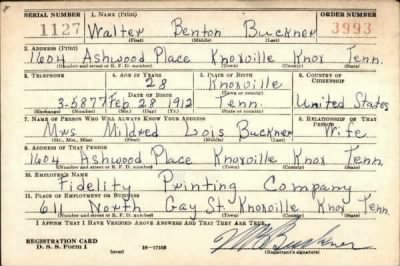 SERIAL NUMBER 1. NAME (Print) ORDER NUMBER
1127 Walter Benton Buckner 3993
(First) (Middle) (Last)
2. ADDRESS (Print)
1604 Ashwood Place Knoxville Knox Tenn.
(Number and street or R. F. D. number) (Town) (County) (State)
3. TELEPHONE 4. AGE IN YEARS 5. PLACE OF BIRTH 6. COUNTRY OF CITIZENSHIP
28 Knoxville
(Town or county)
3-5877 DATE OF BIRTH Feb 28 1912 Tenn. United States
(Exchange) (Number) (Mo.) (Day) (Yr.) (State or country)
7. NAME OF PERSON WHO WILL ALWAYS KNOW YOUR ADDRESS 8. RELATIONSHIP OF THAT PERSON
Mrs Mildred Lois Buckner Wife
(Mr., Mrs., Miss) (First) (Middle) (Last)
9. ADDRESS OF THAT PERSON
1604 Ashwood Place Knoxville Knox Tenn
(Number and street or R. F. D. number) (Town) (County) (State)
10. EMPLOYER'S NAME
Fidelity Printing Company
11. PLACE OF EMPLOYMENT OR BUSINESS
611 North Gay St. Knoxville Knox Tenn
(Number and street or R. F. D. number) (Town) (County) (State)
I AFFIRM THAT I HAVE VERIFIED ABOVE ANSWERS AND THAT THEY ARE TRUE.
REGISTRATION CARD
D. S. S. Form 1 (over) 16-17105 (Registrant's signature)
W B Buckner